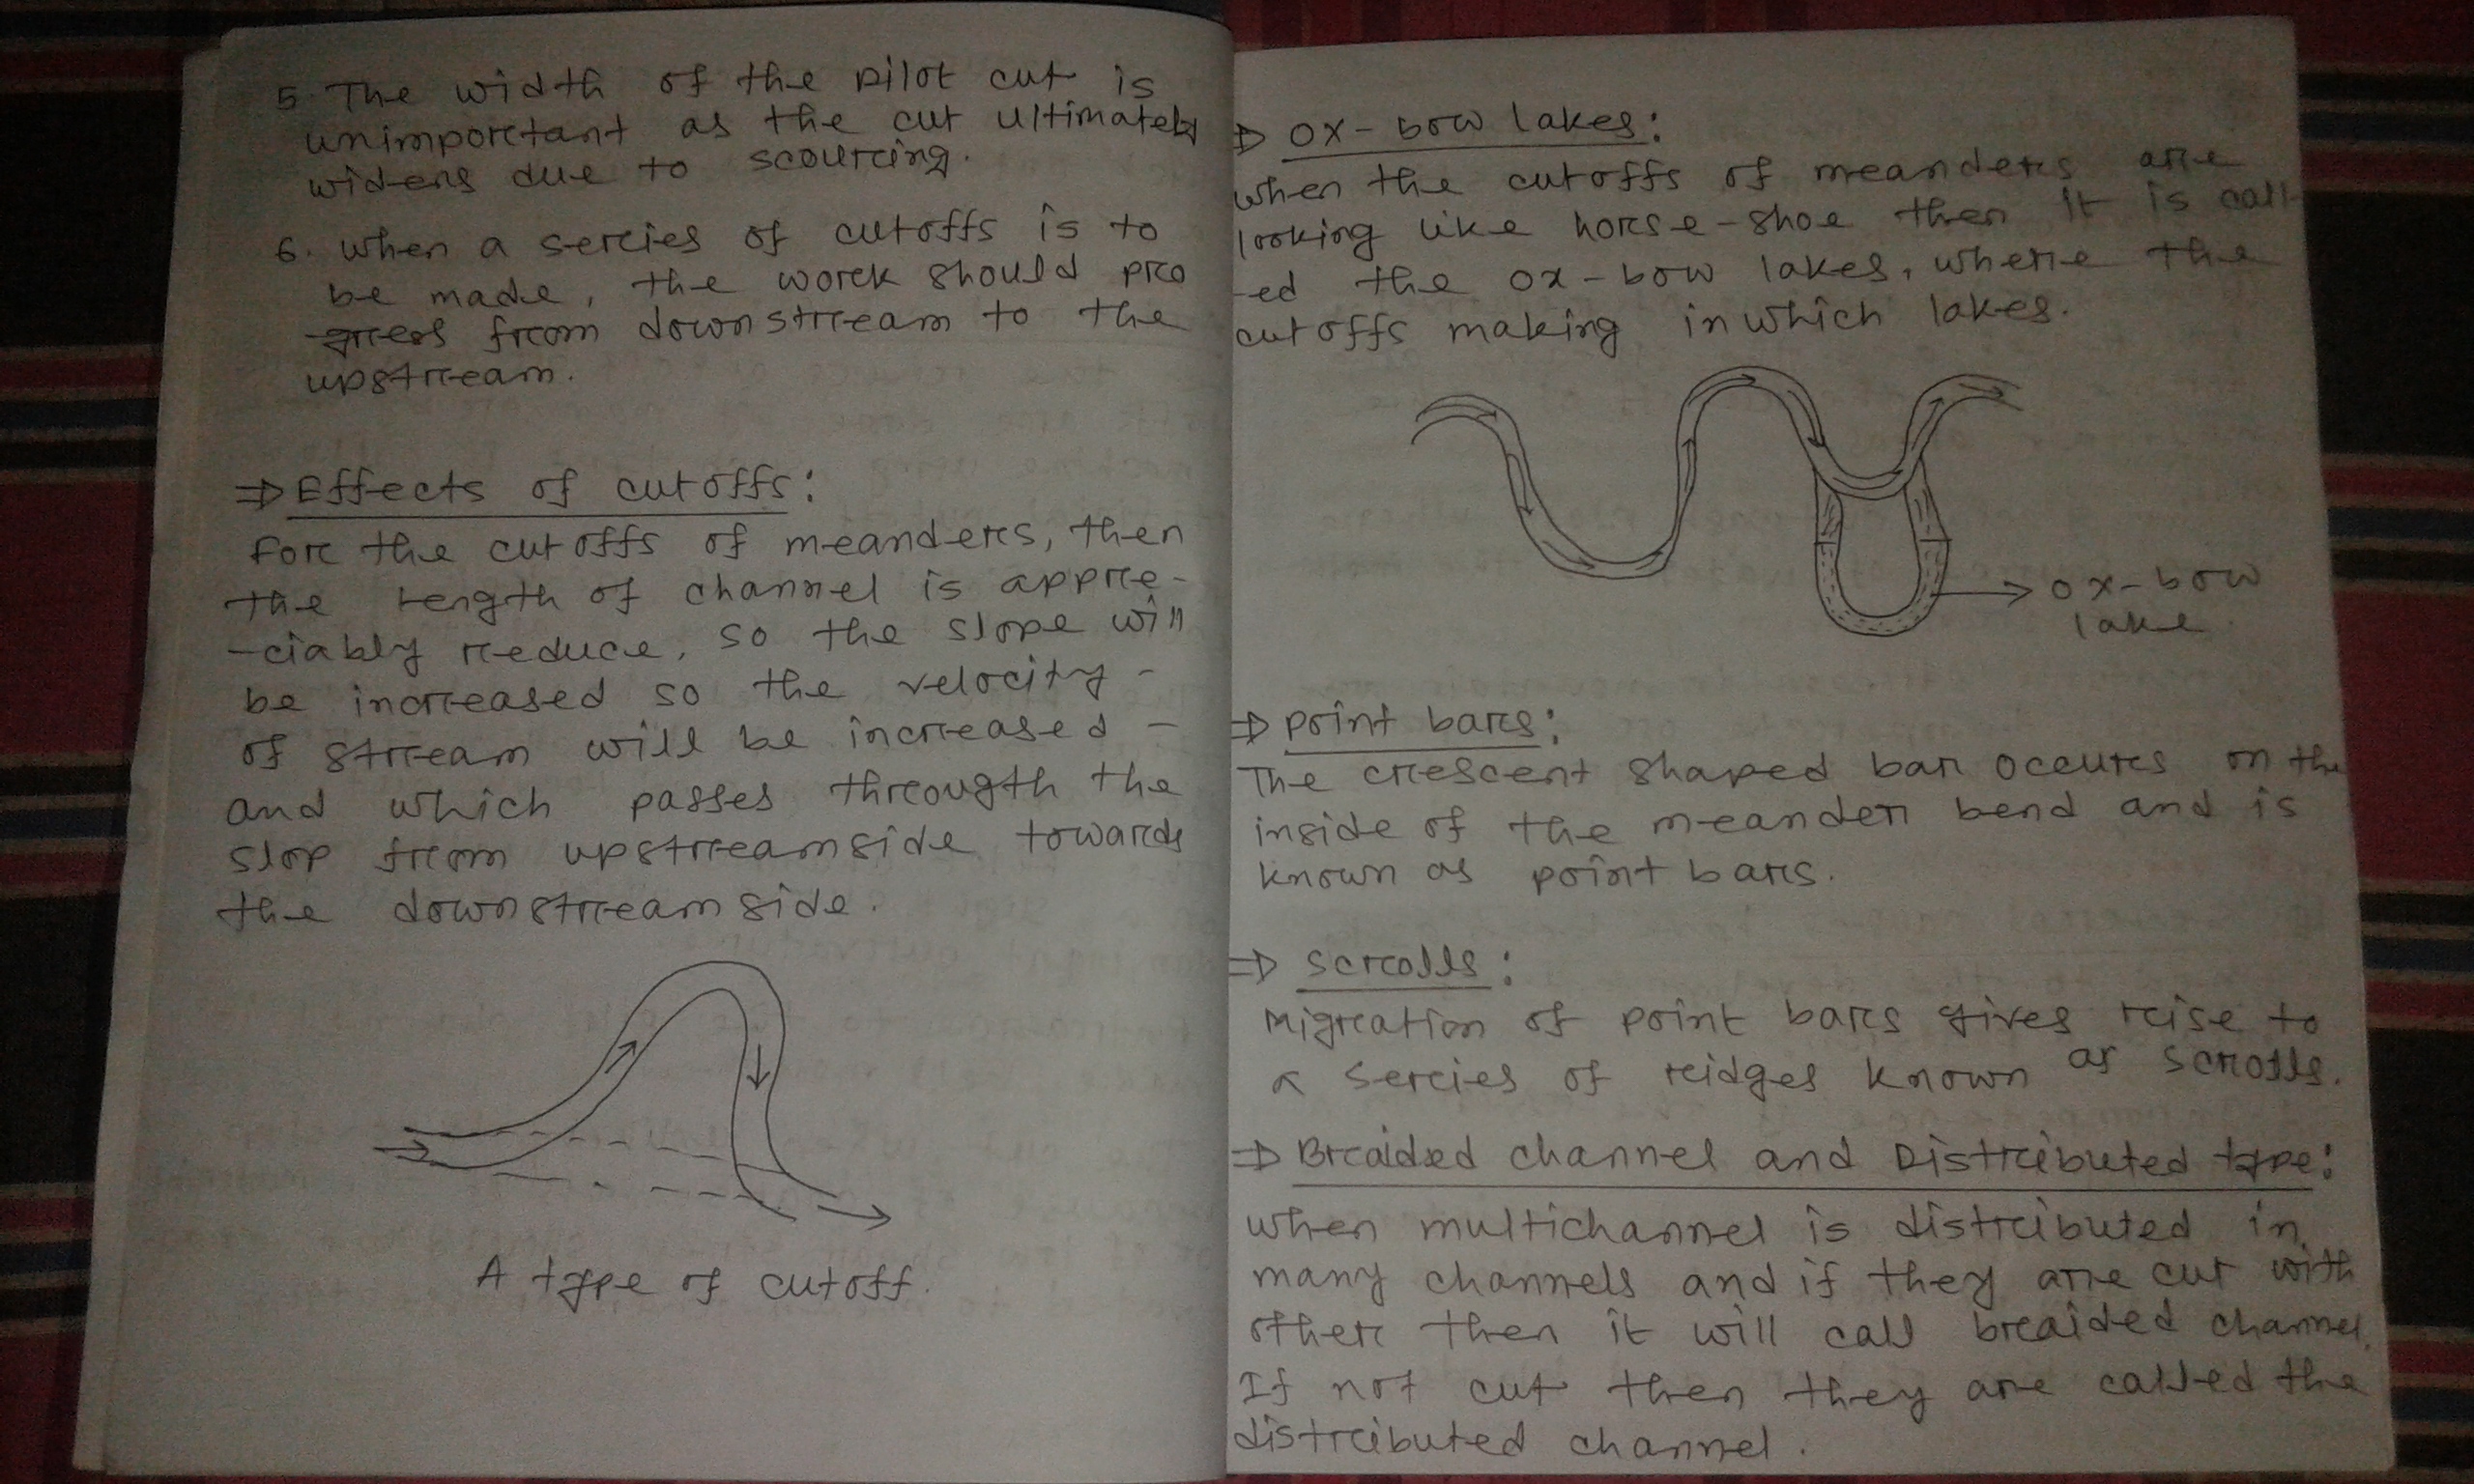 5. The width of the pilot cut is
unimportant as the cut ultimately
widens due to scouring.
6. When a series of cutoffs is to
be made, the work should pro
-gress from downstream to the
upstream.
⇒ Effects of cutoffs:
For the cutoffs of meanders, then
the length of channel is appre-
-ciably reduce, so the slope will
be increased so the velocity -
of stream will be increased -
and which passes througth the
slop from upstreamside towards
the downstream side.
A type of cutoff.
⇒ Ox-bow lakes:
When the cutoffs of meanders are
looking like horse-shoe then it is call-
-ed the ox-bow lakes, where the
cutoffs making in which lakes.
ox-bow
lake
⇒ Point bars:
The crescent shaped bar occurs on the
inside of the meander bend and is
known as point bars.
⇒ Scrolls:
Migration of point bars gives rise to
a series of ridges known as scrolls.
⇒ Braided channel and Distributed type:
When multichannel is distributed in
many channels and if they are cut with
other then it will call braided channel.
If not cut then they are called the
distributed channel.